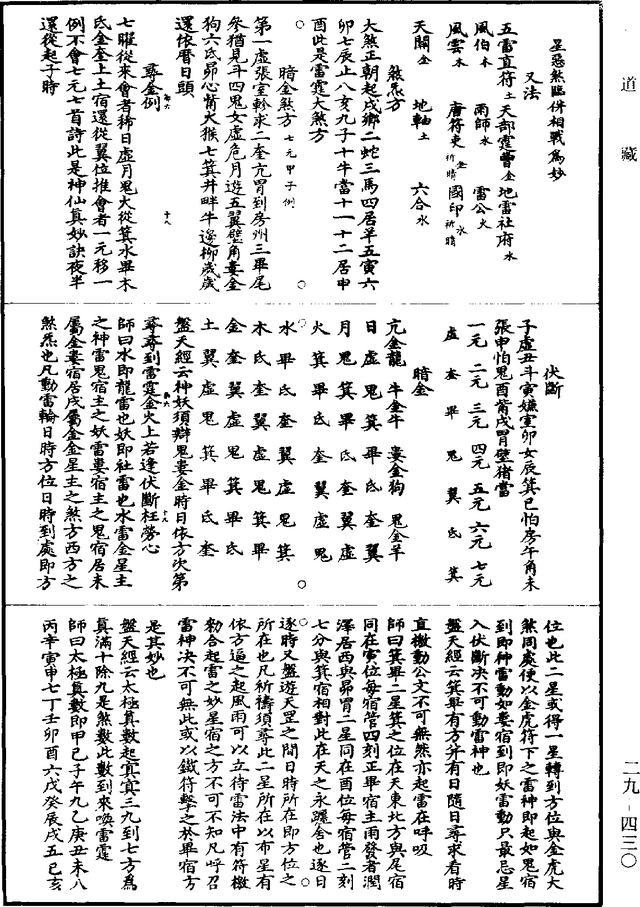 道藏
星惡煞臨併相戰為妙
又法
五雷直符土天部霆曹金地雷社府水
風伯木　雨師水　雷公火
風雲木　唐符吏祈晴　國印水祈晴
天關金　地軸土　六合水
煞炁方
大煞正朝起戌鄉二蛇三馬四居羊五寅六
卯七辰止八亥九子十牛當十一十二居申
酉此是雷霆大煞方
暗金煞方七元甲子例
第一虛張室軫求二奎亢胃到房州三畢尾
參猶見斗四鬼女虛危月遊五翼壁角婁金
狗六氐昴心觜火猴七箕井畔牛邊柳歲歲
還依曆日頭
尋金例
七曜從來會者稀日虛月鬼火從箕水畢木
氐金奎上土宿還從翼位推會者一元移一
例不會七元七首詩此是神仙真妙訣夜半
還從起子時
伏斷
子虛丑斗寅嫌室卯女辰箕巳怕房午角未
張申怕鬼酉觜戌胃壁猪當
一元　二元　三元　四元　五元　六元　七元
虛　奎　畢　鬼　翼　氐　箕
暗金
亢金龍　牛金牛　婁金狗　鬼金羊
日　虛　鬼　箕　畢　氐　奎　翼
月　鬼　箕　畢　氐　奎　翼　虛
火　箕　畢　氐　奎　翼　虛　鬼
水　畢　氐　奎　翼　虛　鬼　箕
木　氐　奎　翼　虛　鬼　箕　畢
金　奎　翼　虛　鬼　箕　畢　氐
土　翼　虛　鬼　箕　畢　氐　奎
盤天經云神妖須辯鬼婁金時日依方次第
尋尋到雷霆金火上若逢伏斷枉勞心
師曰水即龍雷也妖即社雷也水雷金星主
之神雷鬼宿主之妖雷婁宿主之鬼宿居未
屬金婁宿居戌屬金金星主之煞方西方之
煞炁也凡動雷輪日時方位日時到處即方
位也此二星或得一星轉到方位與金虎大
煞同處便以金虎符下之雷神即起如鬼宿
到即神雷動如婁宿到即妖雷動只最忌星
入伏斷決不可動雷神也
盤天經云箕畢有方并有日隨日尋求看時
直檄動公文不可無然亦起雷在呼吸
師曰箕畢二星箕之位在天東北方與尾宿
同在寅位每宿管四刻正畢宿主雨發者潤
澤居西與昴胃二星同在酉位每宿管二刻
七分與箕宿相對此在天之永躔舍也逐日
逐時又盤遊天罡之間日時所在即方位之
所在也凡祈禱須尋此二星所在以布星有
依方逼之起風雨可以立待雷法中有符檄
勑合起雷之妙星宿之方不可不知凡呼召
雷神決不可無此或以鐵符擊之於畢宿方
是其妙也
盤天經云太極真數起寅寅三九到七方為
真滿十除九是煞數此數到來喚雷霆
師曰太極真數即甲己子午九乙庚丑未八
丙辛寅申七丁壬卯酉六戊癸辰戌五巳亥
二九-四三〇